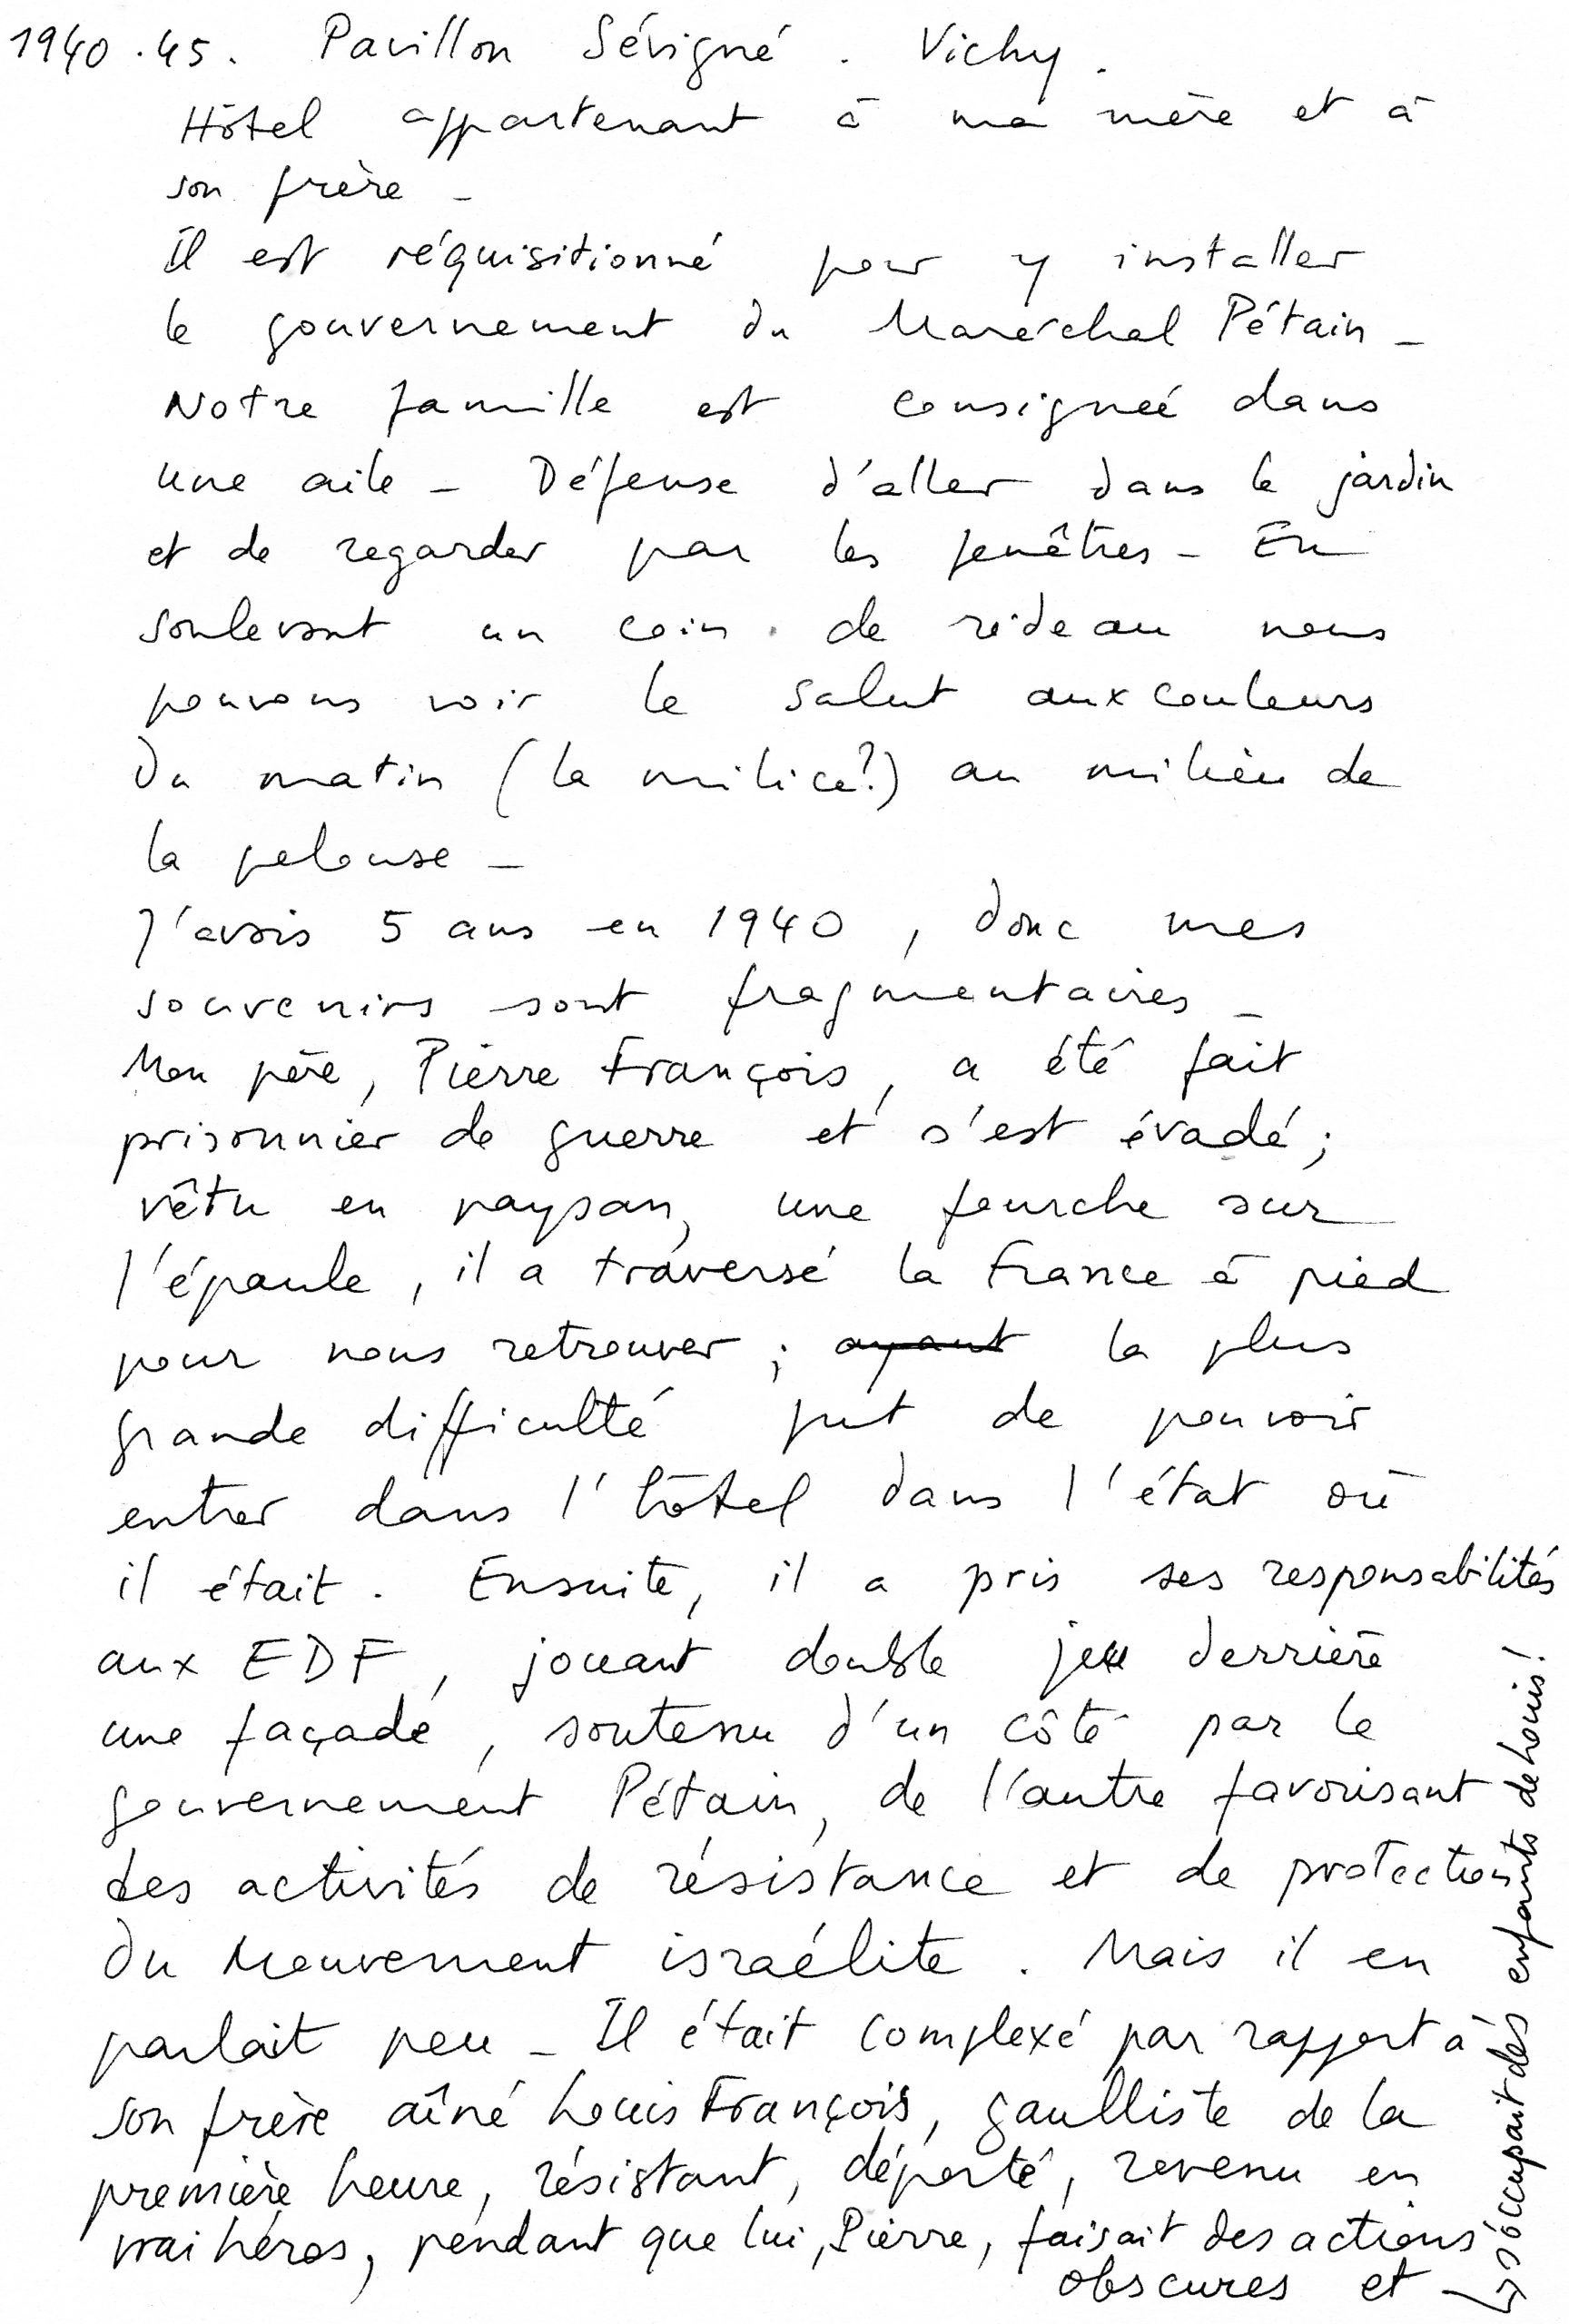 1940.45. Pavillon Sévigné. Vichy.
Hôtel appartenant à ma mère et à
son frère _
Il est réquisitionné pour y installer
le gouvernement du Maréchal Pétain _
Notre famille est consignée dans
une aile _ Défense d'aller dans le jardin
et de regarder par les fenêtres _ En
soulevant un coin de rideau nous
pouvons voir le salut aux couleurs
du matin (la milice?) au milieu de
la pelouse _
J'avais 5 ans en 1940, donc mes
souvenirs sont fragmentaires _
Mon père, Pierre François, a été fait
prisonnier de guerre et s'est évadé;
vêtu en paysan, une fourche sur
l'épaule, il a traversé la France à pied
pour nous retrouver; ayant la plus
grande difficulté fut de pouvoir
entrer dans l'hôtel dans l'état où
il était. Ensuite, il a pris ses responsabilités
aux EDF, jouant double jeu derrière
une façade, soutenu d'un côté par le
gouvernement Pétain, de l'autre favorisant
des activités de résistance et de protection
du Mouvement israélite. Mais il en
parlait peu _ Il était complexé par rapport à
son frère aîné Louis François, gaulliste de la
première heure, résistant, déporté, revenu en
vrai héros, pendant que lui, Pierre, faisait des actions
obscures et
↳ s'occupait des enfants de Louis!